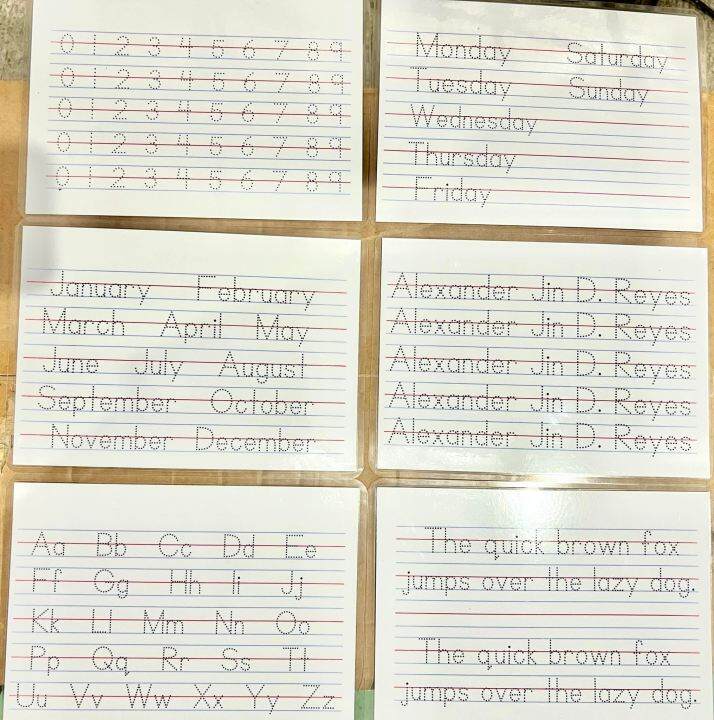 0 1 2 3 4 5 6 7 8 9
0 1 2 3 4 5 6 7 8 9
0 1 2 3 4 5 6 7 8 9
0 1 2 3 4 5 6 7 8 9
0 1 2 3 4 5 6 7 8 9
Monday Saturday
Tuesday Sunday
Wednesday
Thursday
Friday
January February
March April May
June July August
September October
November December
Alexander Jin D. Reyes
Alexander Jin D. Reyes
Alexander Jin D. Reyes
Alexander Jin D. Reyes
Alexander Jin D. Reyes
Aa Bb Cc Dd Ee
Ff Gg Hh Ii Jj
Kk Ll Mm Nn Oo
Pp Qq Rr Ss Tt
Uu Vv Ww Xx Yy Zz
The quick brown fox
jumps over the lazy dog.
The quick brown fox
jumps over the lazy dog.